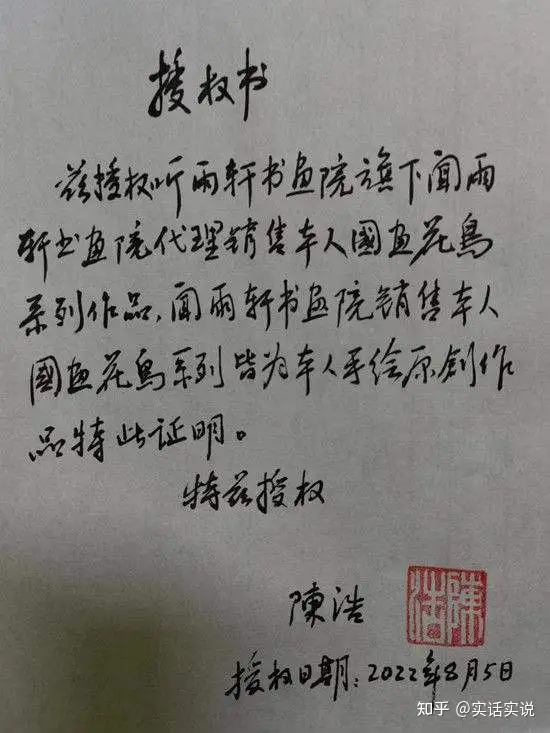 授权书
兹授权听雨轩书画院旗下闻雨
轩书画院代理销售本人國画花鳥
系列作品,闻雨轩书画院销售本人
國画花鳥系列皆为本人手绘原創作
品特此证明。
特兹授权
陳浩
陳浩
授权日期:2022年8月5日
知乎 @实话实说